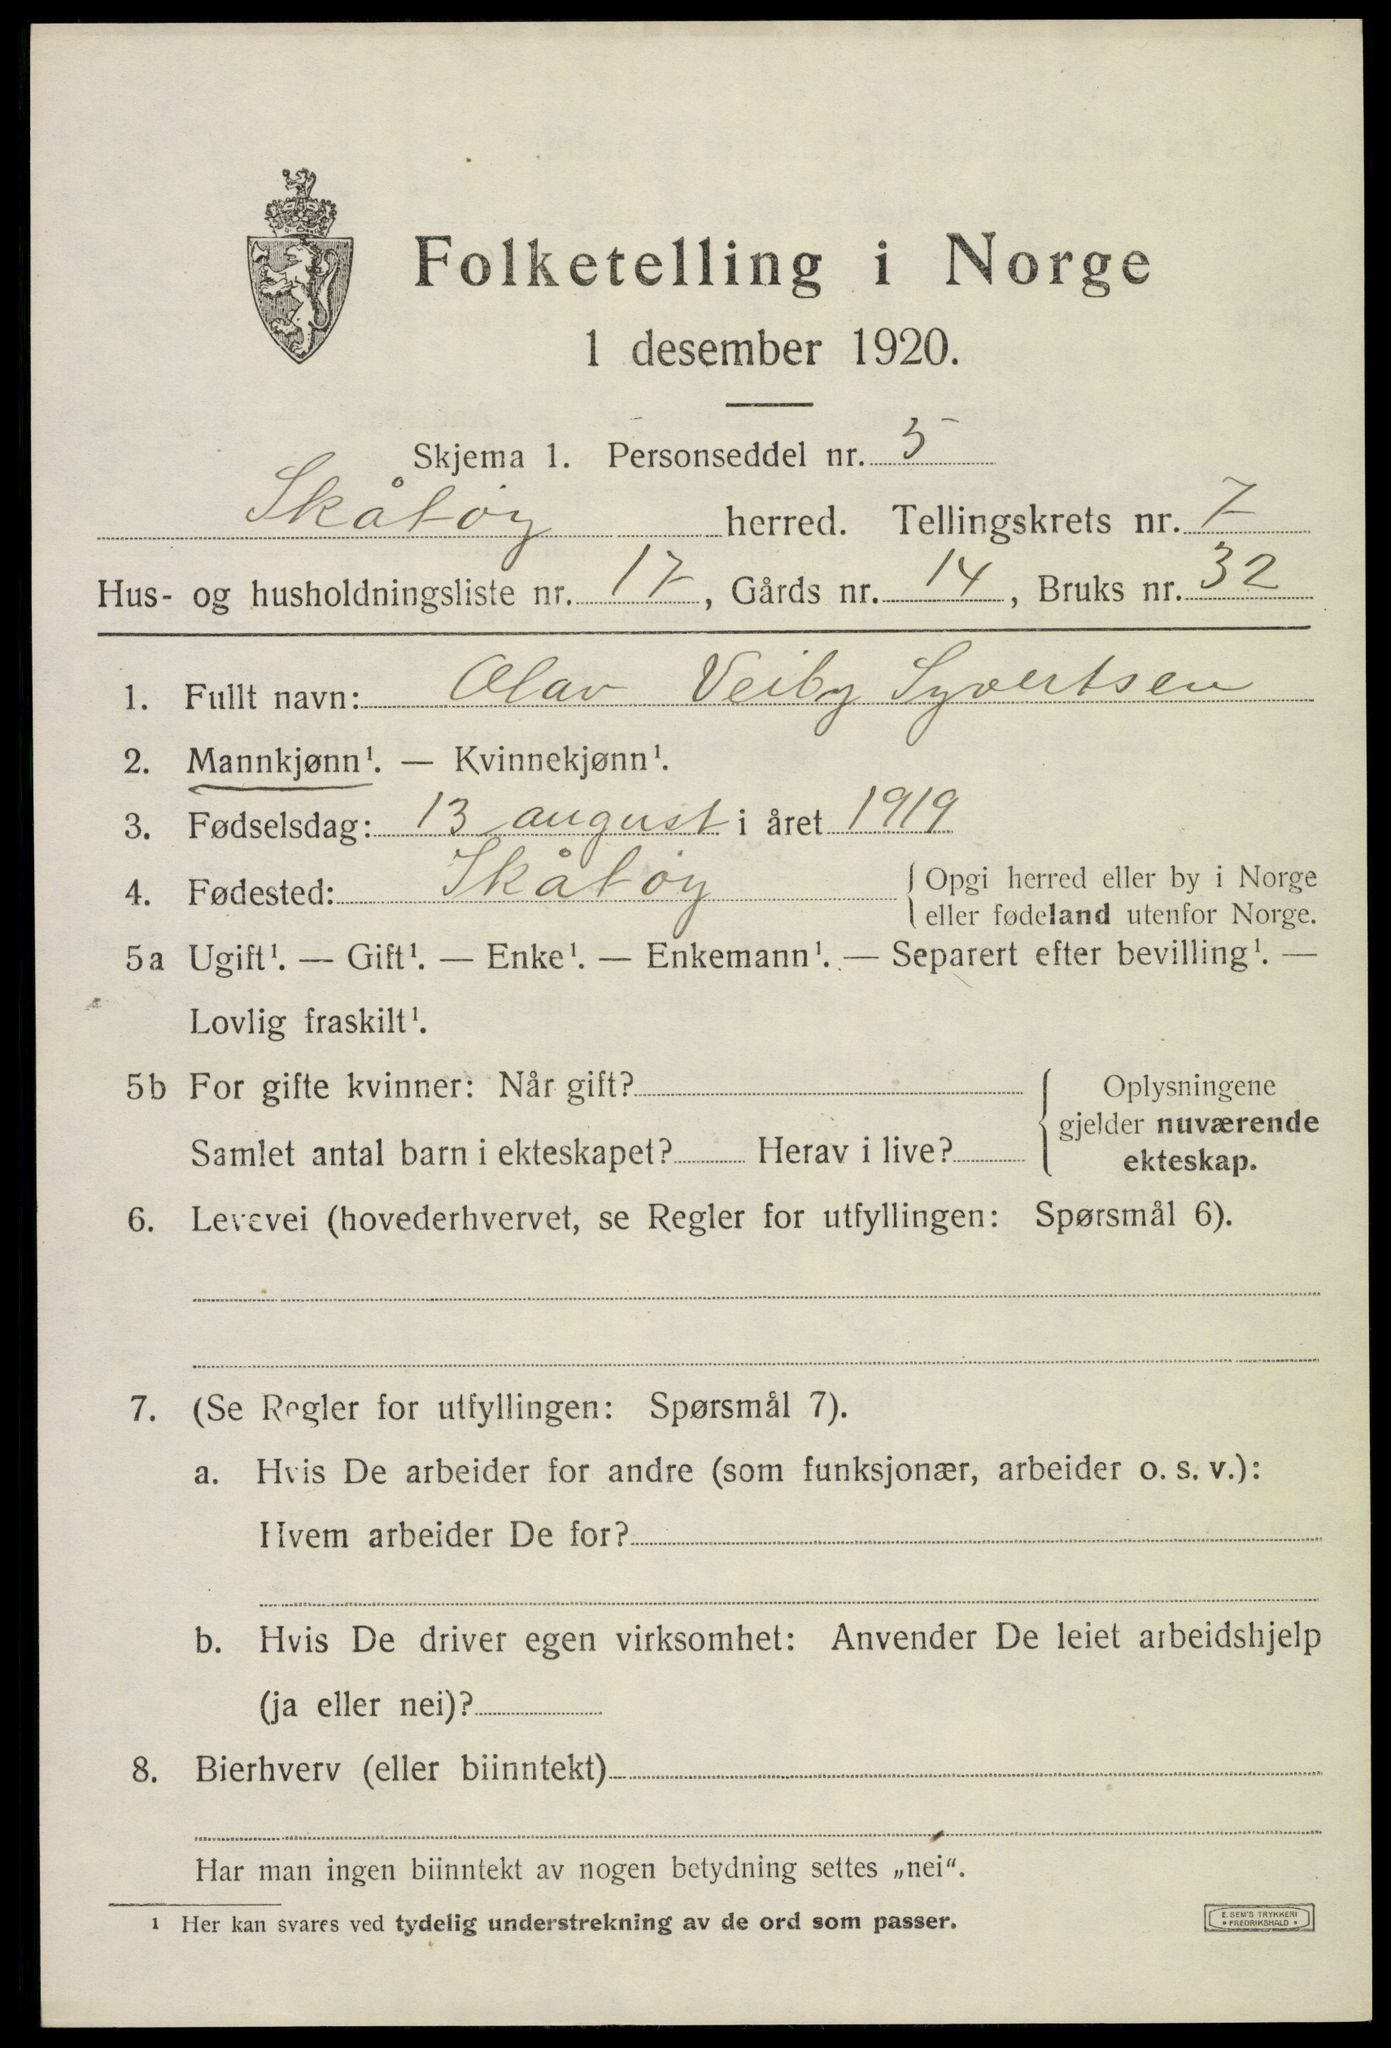 Folketelling i Norge
1 desember 1920.
Skjema 1. Personseddel nr. 5
Skåtøy herred. Tellingskrets nr. 7
Hus- og husholdningsliste nr. 17, Gårds nr. 14, Bruks nr. 32
1. Fullt navn: Olav Veiby Syvertsen
2. Mannkjønn¹. — Kvinnekjønn¹.
3. Fødselsdag: 13 august i året 1919
4. Fødested: Skåtøy { Opgi herred eller by i Norge
eller fødeland utenfor Norge.
5a Ugift¹. — Gift¹. — Enke¹. — Enkemann¹. — Separert efter bevilling¹. —
Lovlig fraskilt¹.
5b For gifte kvinner: Når gift?
Samlet antal barn i ekteskapet? Herav i live?
{ Oplysningene
gjelder nuværende
ekteskap.
6. Levevei (hovederhvervet, se Regler for utfyllingen: Spørsmål 6).
7. (Se Regler for utfyllingen: Spørsmål 7).
a. Hvis De arbeider for andre (som funksjonær, arbeider o. s. v.):
Hvem arbeider De for?
b. Hvis De driver egen virksomhet: Anvender De leiet arbeidshjelp
(ja eller nei)?
8. Bierhverv (eller biinntekt)
Har man ingen biinntekt av nogen betydning settes „nei“.
¹ Her kan svares ved tydelig understrekning av de ord som passer.
E. SEM'S TRYKKERI
• FREDRIKSHALD •